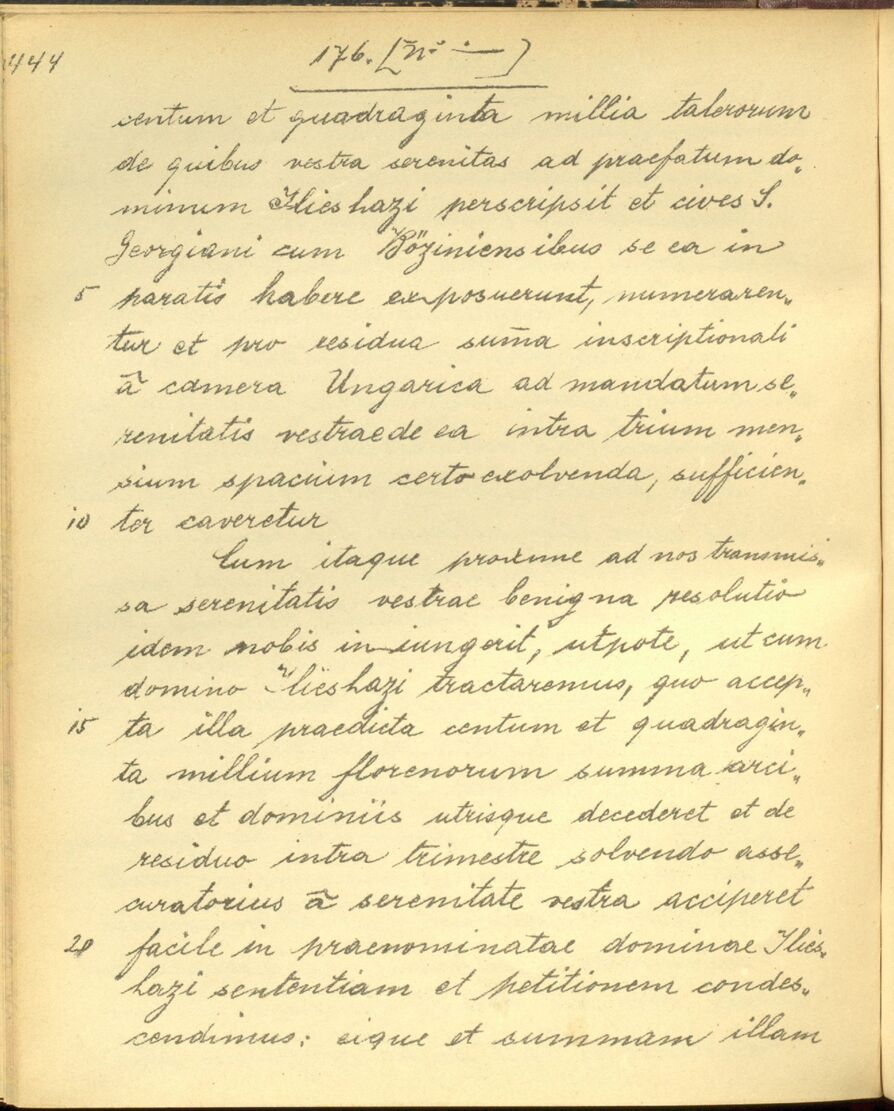 444
176. [N° · —]
centum et quadraginta millia talerorum
de quibus vestra serenitas ad praefatum do„
minum Ilieshazi perscripsit et cives S.
Georgiani cum Böziniensibus se ea in
5 paratis habere exposuerunt, numeraren„
tur et pro residua sum̄a inscriptionali
ã camera Ungarica ad mandatum se„
renitatis vestrae de ea intra trium men„
sium spacium certo exolvenda, sufficien„
10 ter caveretur
Cum itaque proxime ad nos transmis„
sa serenitatis vestrae benigna resolutio
idem nobis iniungerit, utpote, ut cum
domino Ilieshazi tractaremus, quo accep„
15 ta illa praedicta centum et quadragin„
ta millium florenorum summa arci„
bus et dominiis utrisque decederet et de
residuo intra trimestre solvendo asse„
curatorius ã serenitate vestra acciperet
20 facile in praenominatae dominae Ilies„
hazi sententiam et petitionem condes„
cendimus: eique et summam illam